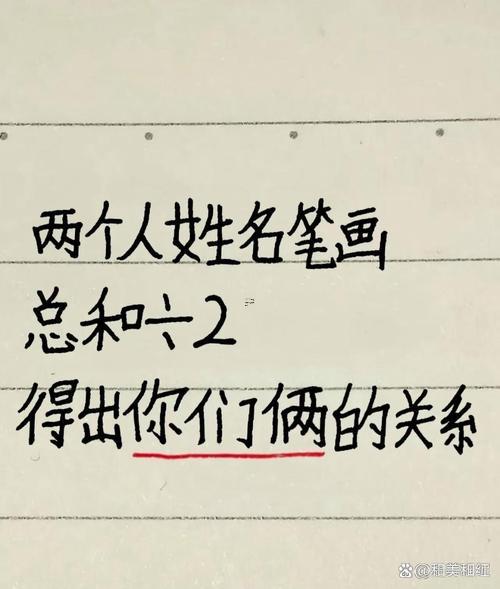 两个人姓名笔画
总和÷2
得出你们俩的关系
@和美和红